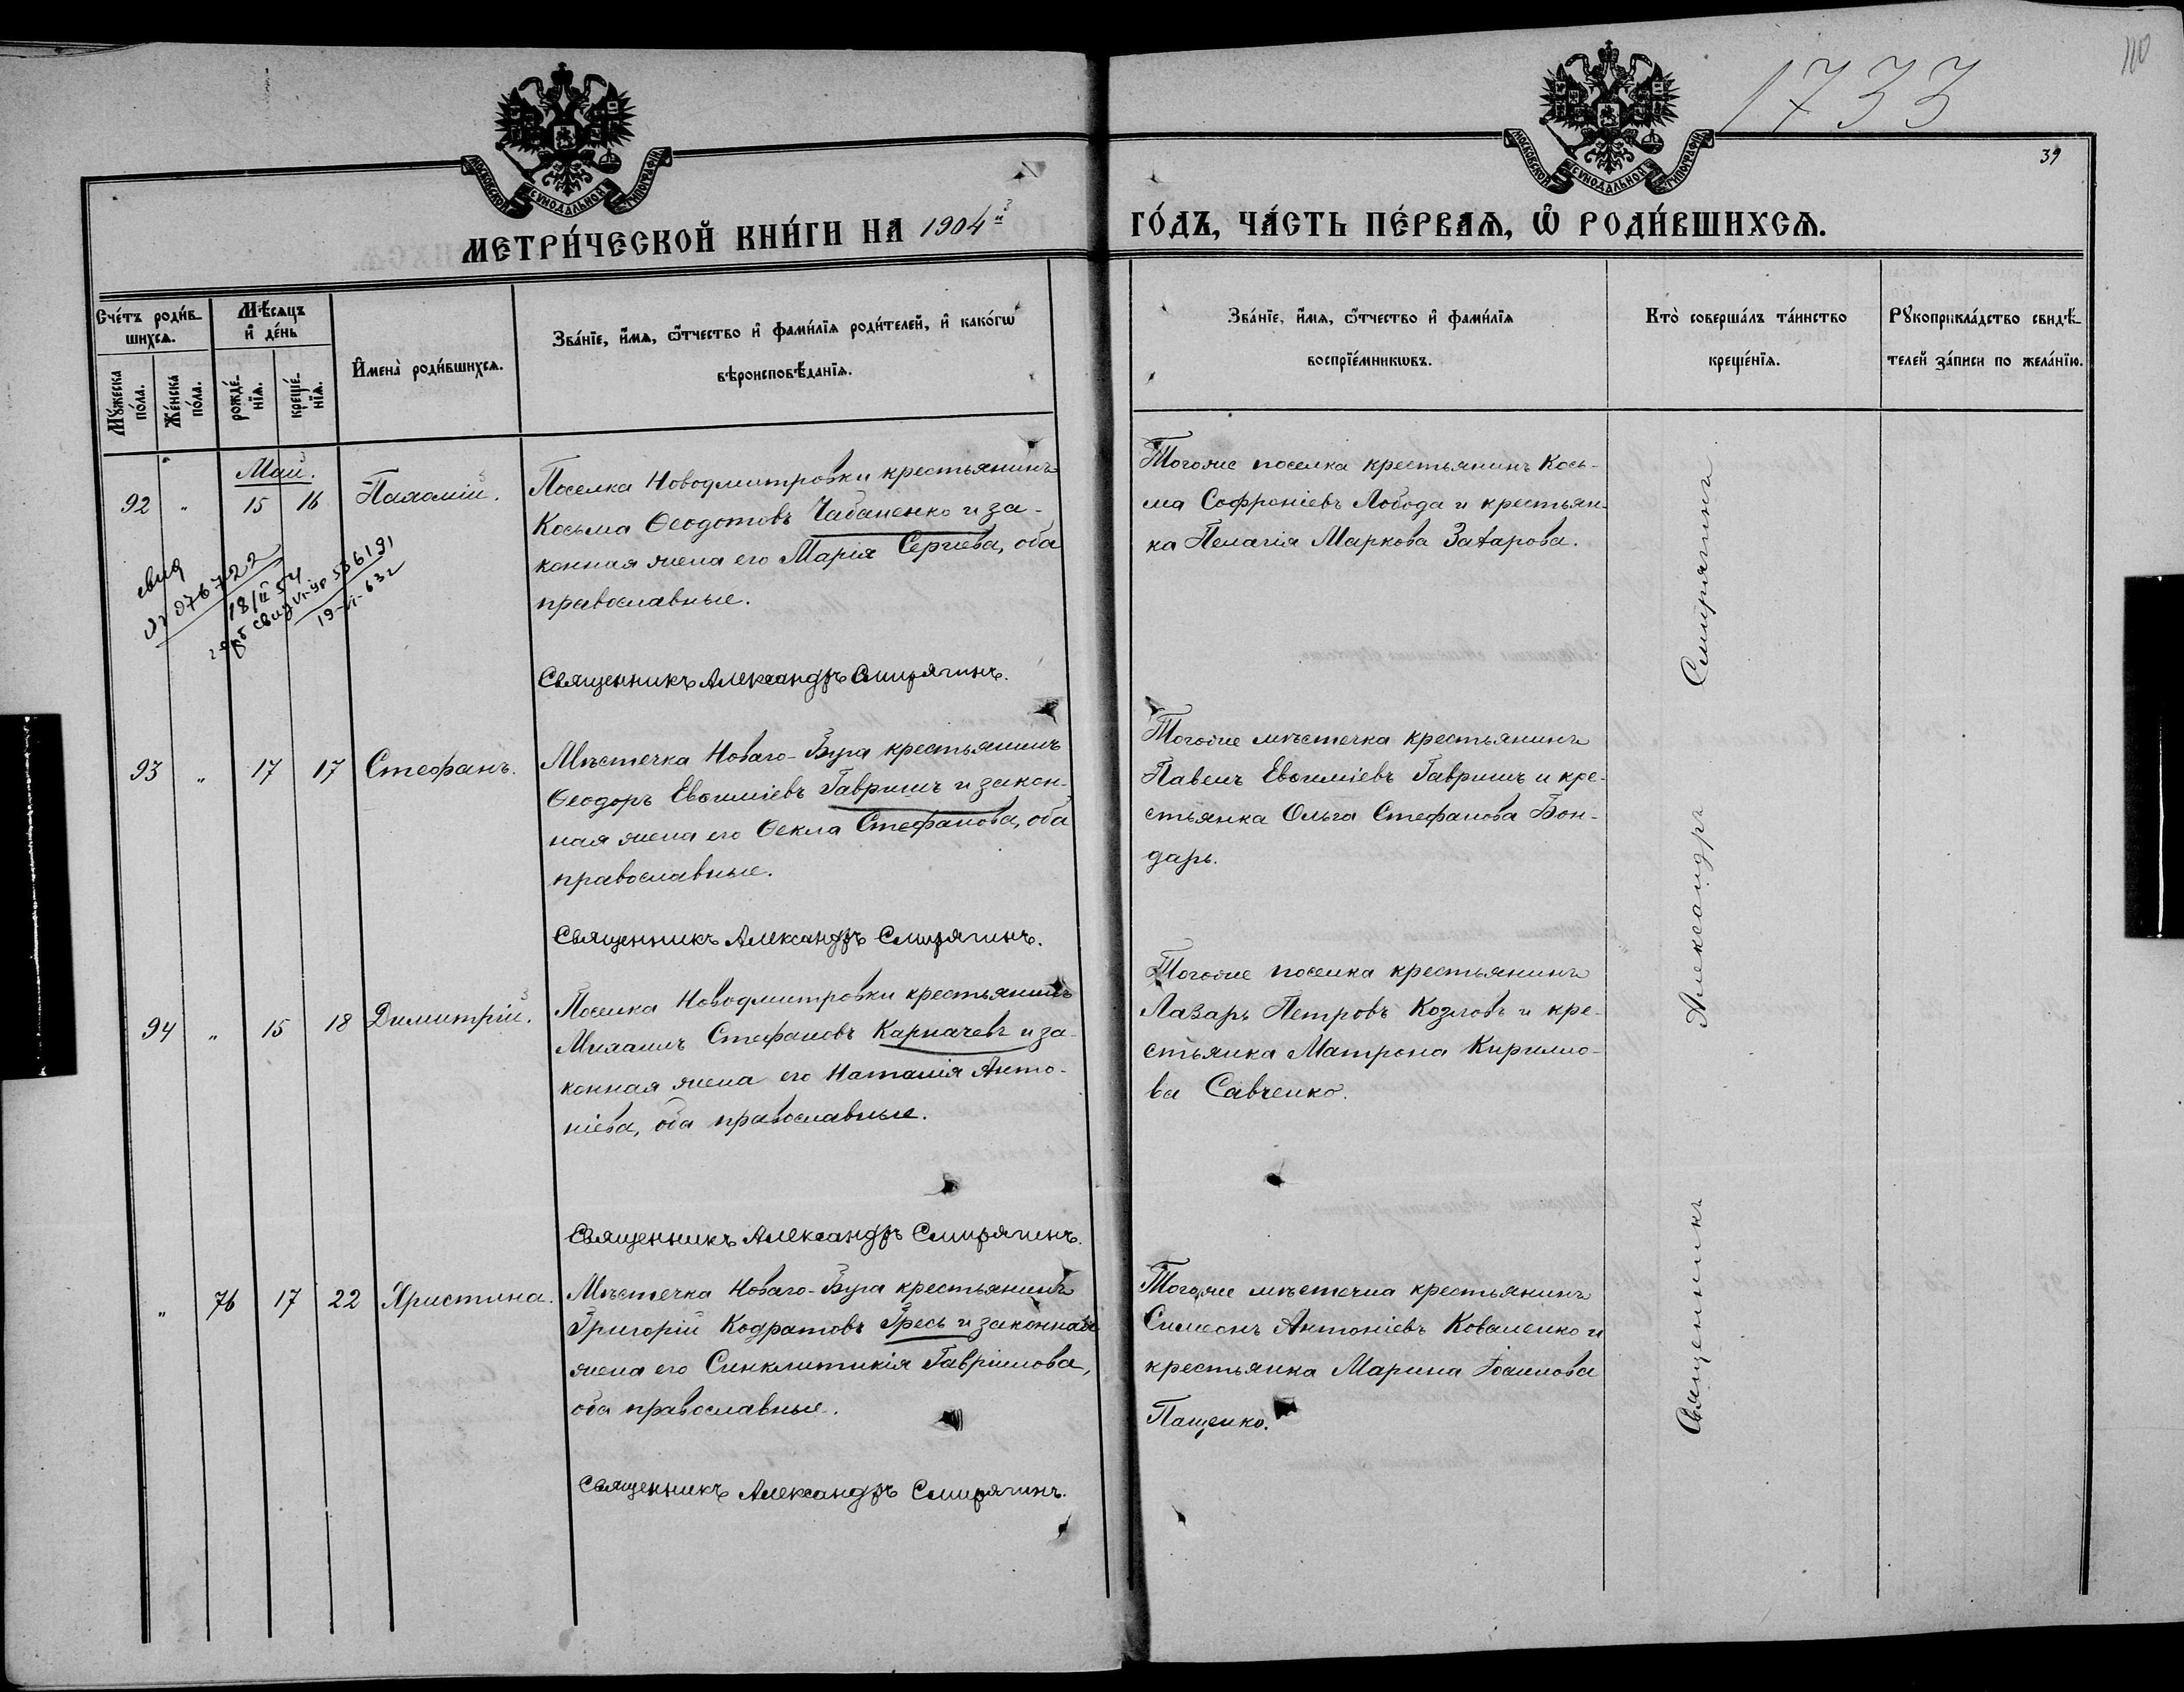 1733
110
39
МОСКОВСКОЙ СѴНОДАЛЬНОЙ ТИПОГРАФІИ
МОСКОВСКОЙ СѴНОДАЛЬНОЙ ТИПОГРАФІИ
МЕТРИ́ЧЕСКОЙ КНИ́ГИ НА 1904й ГО́ДЪ, ЧА́СТЬ ПЕ́РВАѦ, Ѿ РОДИ́ВШИХСѦ.
Сче́тъ роди́в-
шихсѧ.
Мѣ́сѧцъ
и҆ де́нь
Мꙋ́жеска
по́ла.
Же́нска
по́ла.
рожде́-
нїѧ.
креще́-
нїѧ.
И҆мена̀ роди́вшихсѧ.
Зва́нїе, и҆́мѧ, ѻ҆́тчество и҆ фами́лїѧ роди́телей, и҆ како́гѡ
вѣроисповѣ́данїѧ.
Зва́нїе, и҆́мѧ, ѻ҆́тчество и҆ фами́лїѧ
воспрїе́мникѡвъ.
Кто̀ соверша́лъ та́инство
креще́нїѧ.
Рꙋкоприкла́дство свидѣ́-
телей за́писи по жела́нїю.
Май.
92 " 15 16 Пахомій.
Поселка Новодмитровки крестьянинъ
Косьма Ѳеодотовъ Чабаненко и за-
конная жена его Марія Сергіева, оба
православные.
Священникъ Александръ Смирягинъ.
Тогоже поселка крестьянинъ Кось-
ма Софроніевъ Лобода и крестьян-
ка Пелагія Маркова Захарова.
свид
076722
18/II 54
свид VI-УР 536191
19-VI-63г
93 " 17 17 Стефанъ.
Мѣстечка Новаго-Буга крестьянинъ
Ѳеодоръ Евѳиміевъ Гавришъ и закон-
ная жена его Ѳекла Стефанова, оба
православные.
Священникъ Александръ Смирягинъ.
Тогоже мѣстечка крестьянинъ
Павелъ Евѳиміевъ Гавришъ и кре-
стьянка Ольга Стефанова Бон-
дарь.
94 " 15 18 Димитрій.
Поселка Новодмитровки крестьянинъ
Михаилъ Стефановъ Карпачевъ и за-
конная жена его Наталія Анто-
ніева, оба православные.
Священникъ Александръ Смирягинъ.
Тогоже поселка крестьянинъ
Лазарь Петровъ Козловъ и кре-
стьянка Матрона Кирилло-
ва Савченко.
" 76 17 22 Христина.
Мѣстечка Новаго-Буга крестьянинъ
Григорій Кодратовъ Гресь и законная
жена его Синклитикія Гавріилова,
оба православные.
Священникъ Александръ Смирягинъ.
Тогоже мѣстечка крестьянинъ
Симеонъ Антоніевъ Коваленко и
крестьянка Марина Іоаннова
Пащенко.
Священникъ Александръ Смирягинъ